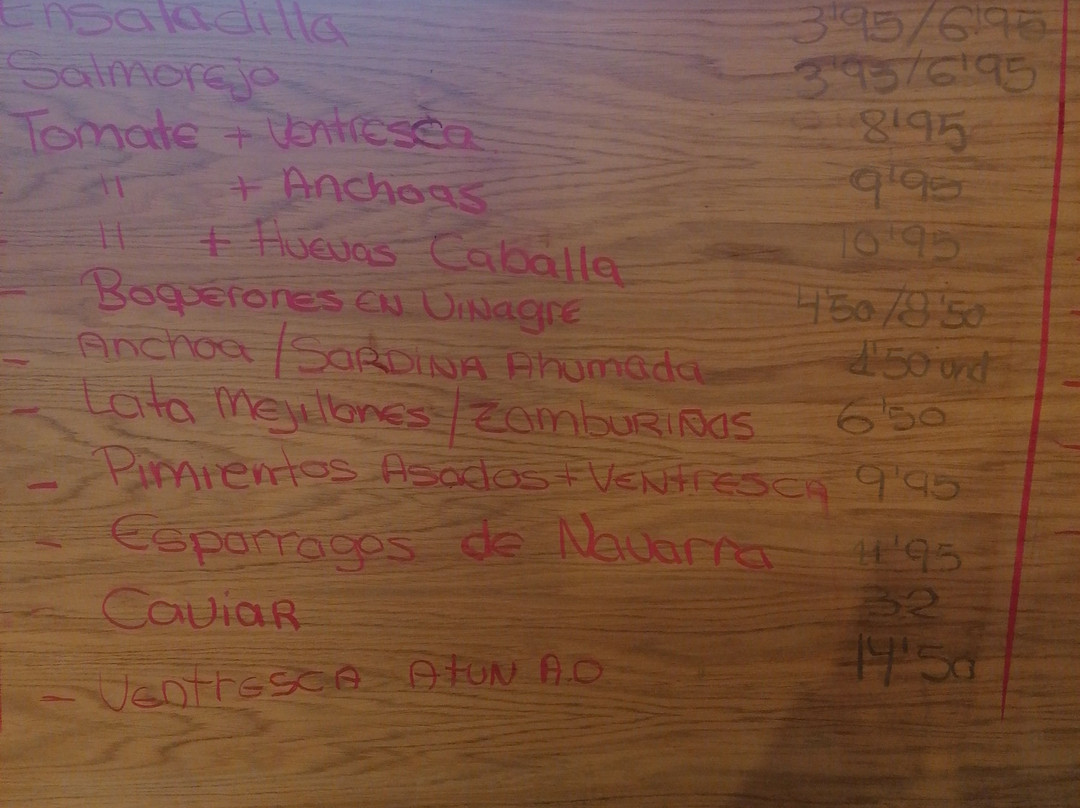 Ensaladilla 3'95/6'95
Salmorejo 3'95/6'95
Tomate + Ventresca 8'95
" + Anchoas 9'95
" + Huevas Caballa 10'95
- Boquerones en Vinagre 4'50/8'50
- Anchoa / Sardina Ahumada 1'50 und
- Lata Mejillones / Zamburiñas 6'50
- Pimientos Asados + Ventresca 9'95
- Esparragos de Navarra 11'95
Caviar 32
- Ventresca Atun A.O 14'50